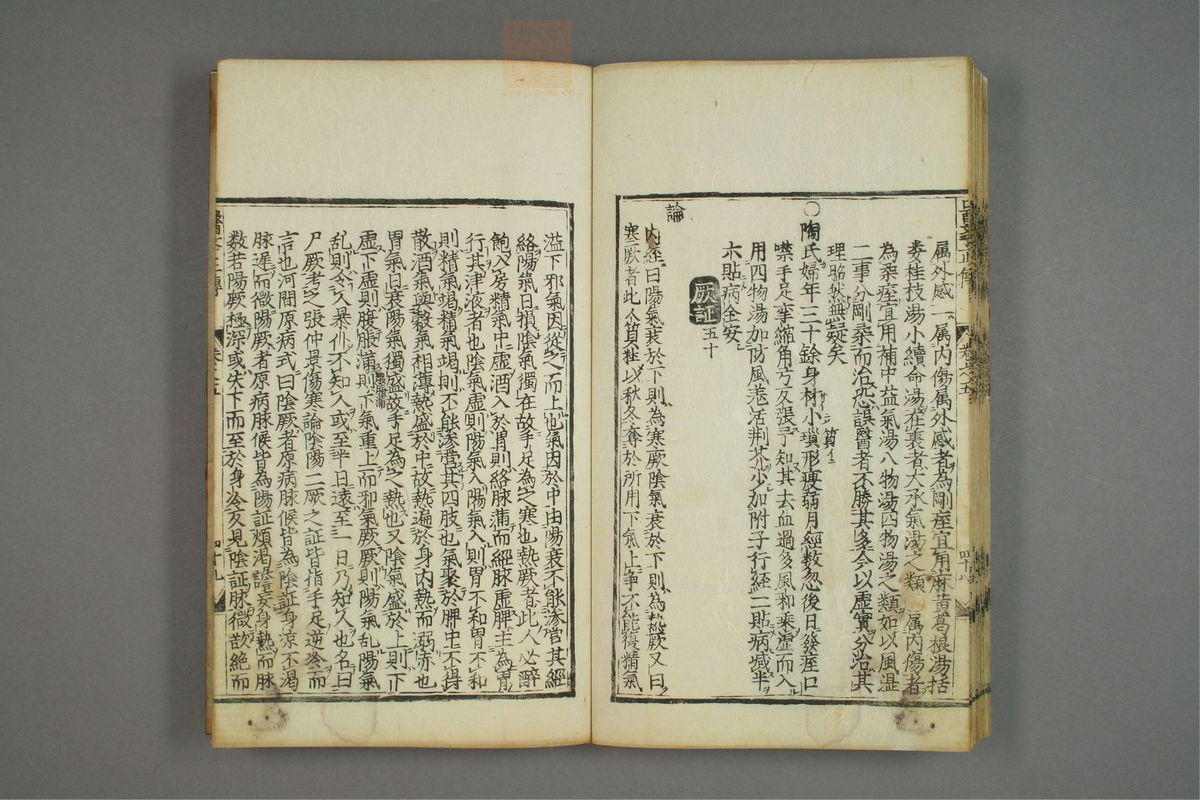 属外感一属内傷属外感者為剛痓宜用麻黄葛根湯括
蔞桂枝湯小續命湯在裏者大承氣湯之類属内傷者
為柔痓宜用補中益氣湯八物湯四物湯之類如以風湿
二事分剛柔而治恐誤醫者不勝其多今以虚實分治其
理昭然無疑矣
○陶氏婦年三十餘身材小瑣形瘦弱月經数忽後日發痓口
噤手足挛縮角方反張予知其去血過多風和乗虚而入
用四物湯加防風羌活荆芥少加附子行經二貼病减半
六貼病全安
厥証五十
論
内經曰陽氣衰於下則為寒厥陰氣衰於下則為熱厥又曰
寒厥者此人質壮以秋冬奪於所用下氣上争不能復精氣
溢下邪氣因從之而上也氣因於中由陽衰不能渗营其經
絡陽氣日損陰氣獨在故手足為之寒也熱厥者此人必醉
飽入房精氣中虚酒入於胃則絡脉蒲而經脉虚脾主為胃
行其津液者也陰氣虚則陽氣入陽氣入則胃不和胃不和
則精氣竭精氣竭則不能渗营其四肢也氣聚於脾中不得
散酒氣與穀氣相薄熱盛於中故熱遍於身内熱而溺赤也
胃氣日衰陽氣獨盛故手足為之熱也又陰氣盛於上則下
虚下虚則腹脹蒲則下氣重上而邪氣厥厥則陽氣乱陽氣
乱則令人暴仆不知人或至半日遠至一日乃知人也名曰
尸厥考之張仲景傷寒論陰陽二厥之証皆指手足逆冷而
言也河間原病式曰陰厥者原病脉候皆為陰証身凉不渇
脉遅而微陽厥者原病脉候皆為陽証煩渇譫妄身熱而脉
数若陽厥極深或失下而至於身冷反見陰証脉微欲絶而
四十九